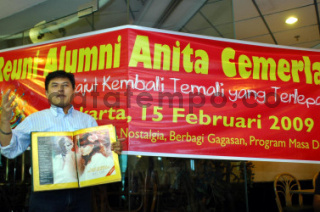 Reuni Alumni Anita Cemerla
ajut Kembali Temali yang Terlepa
karta, 15 Februari 2009
Nostalgia, Berbagi Gagasan, Program Masa D